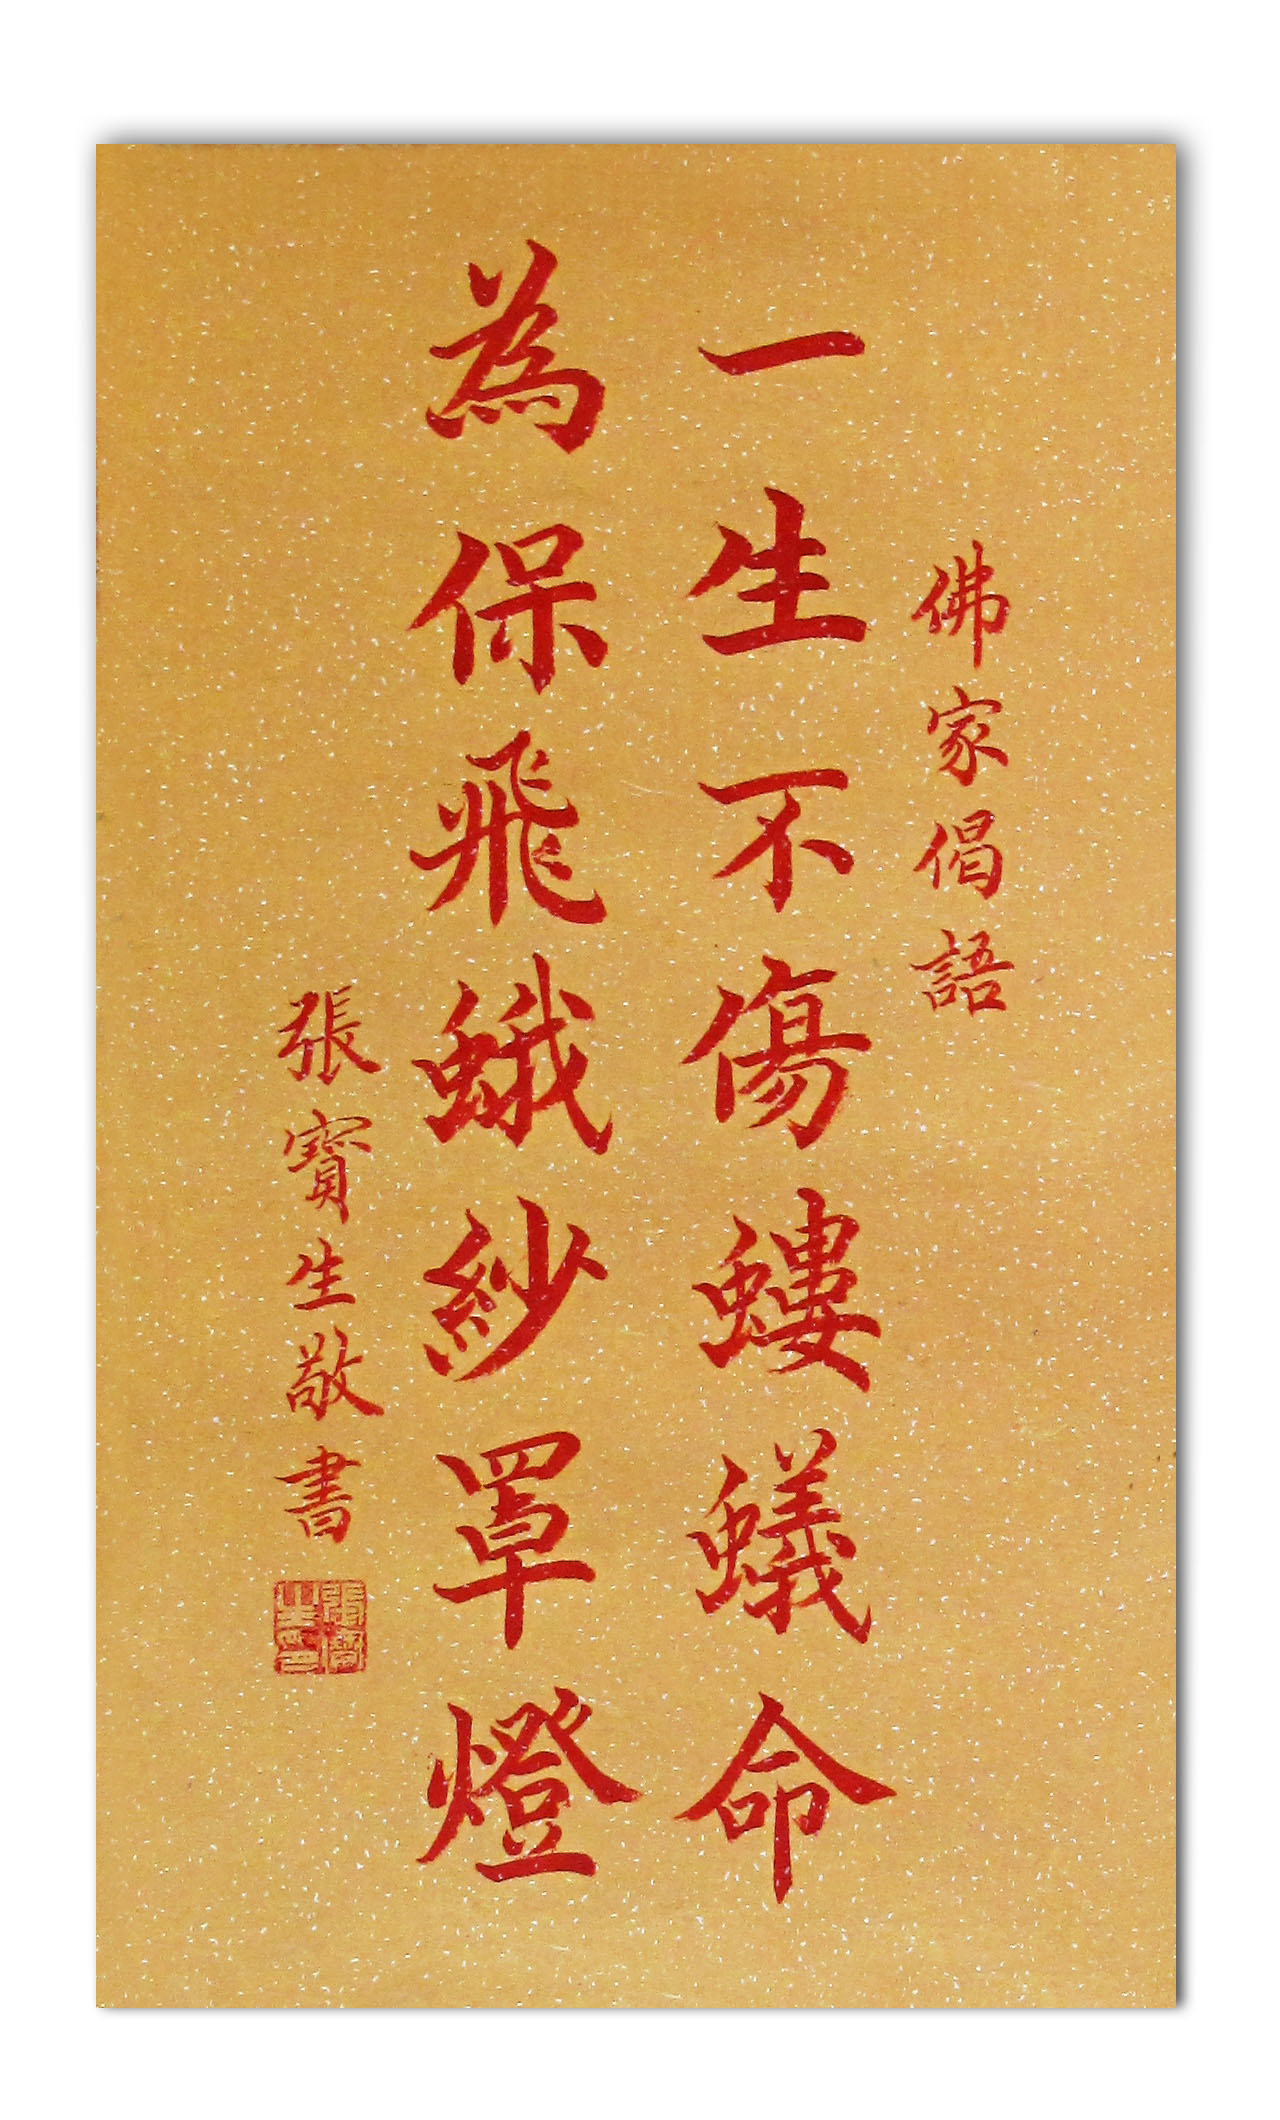 佛家偈語
一生不傷螻蟻命
為保飛蛾紗罩燈
張寶生敬書
張寶生印